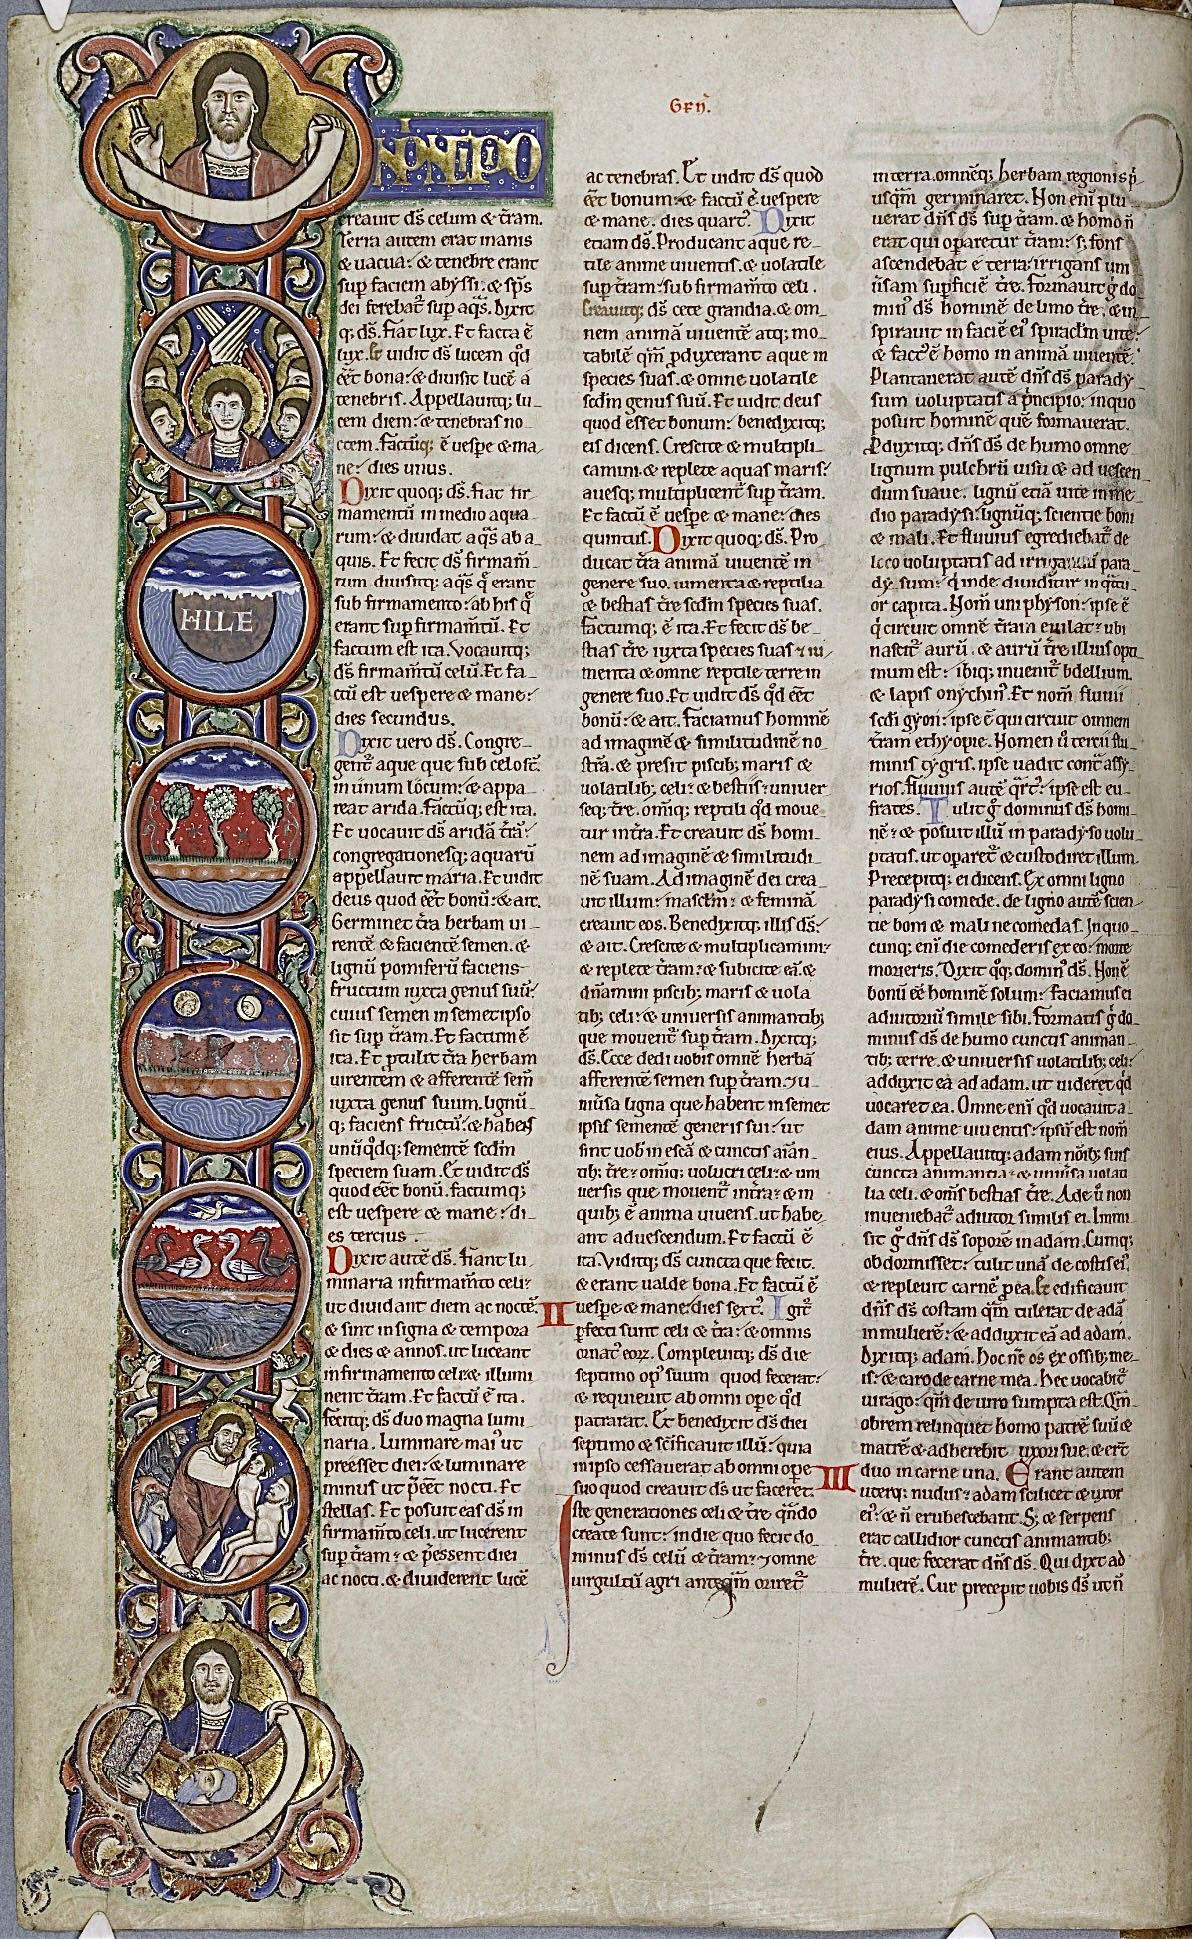 Geñ.
IN PRINCIPIO
HILE
creauit ds̄ celum & t̄ram.
Terra autem erat inanis
& uacua: & tenebre erant
sup faciem abyssi: & sp̄s
dei ferebat᷑ sup aq̄s. Dixit
q; ds̄. Fiat lux. Et facta ē
lux. Et uidit ds̄ lucem qd̄
eēt bona: & diuisit lucē a
tenebris. Appellauitq; lu
cem diem: & tenebras no
ctem. Factūq; ē uespe & ma
ne: dies unus.
Dixit quoq; ds̄. Fiat fir
mamentū in medio aqua
rum: & diuidat aq̄s ab a
quis. Et fecit ds̄ firmam̄
tum. diuisitq; aq̄s q̄ erant
sub firmamento: ab his q̄
erant sup firmam̄tū. Et
factum est ita. Vocauitq;
ds̄ firmam̄tū celū. Et fa
ctū est uespere & mane:
dies secundus.
Dixit uero ds̄. Congre
gent᷑ aque que sub celo st̄.
in unum locum: & appa
reat arida. Factūq; est ita.
Et uocauit ds̄ aridā t̄rā:
congregationesq; aquarū
appellauit maria. Et uidit
deus quod eēt bonū: & ait.
Germinet t̄ra herbam ui
rentē & facientē semen. &
lignū pomiferū faciens
fructum iuxta genus suū:
cuius semen in semetipso
sit sup t̄ram. Et factum ē
ita. Et ꝓtulit t̄ra herbam
uirentem & afferentē sem̄
iuxta genus suum. lignū
q; faciens fructū: & habens
unūqdq; sementē scdm
speciem suam. Et uidit ds̄
quod eēt bonū. factumq;
est uespere & mane: di
es tercius.
Dixit autē ds̄. Fiant lu
minaria in firmam̄to celi:
ut diuidant diem ac noctē.
& sint in signa & tempora
& dies & annos. ut luceant
in firmamento celi: & illumi
nent t̄ram. Et factū ē ita.
fecitq; ds̄ duo magna lumi
naria. Luminare mai᷒ ut
preesset diei: & luminare
minus ut p̄eēt nocti. Et
stellas. Et posuit eas ds̄ in
firmam̄to celi. ut lucerent
sup t̄ram: & p̄essent diei
ac nocti. & diuiderent lucē
ac tenebras. Et uidit ds̄ quod
eēt bonum: & factū ē uespere
& mane. dies quart᷒. Dixit
etiam ds̄. Producant aque re
tile anime uiuentis. & uolatile
sup t̄ram: sub firmam̄to celi.
Creauitq; ds̄ cete grandia. & om
nem animā uiuentē atq; mo
tabilē qm̄ ꝓduxerant aque in
species suas. & omne uolatile
scdm genus suū. Et uidit deus
quod esset bonum: benedixitq;
eis dicens. Crescite & multipli
camini. & replete aquas maris:
auesq; multiplicent᷑ sup t̄ram.
Et factū ē uespe & mane: dies
quintus. Dixit quoq; ds̄. Pro
ducat t̄ra animā uiuentē in
genere suo. iumenta & reptilia
& bestias t̄re scdm species suas.
Factumq; ē ita. Et fecit ds̄ be
stias t̄re iuxta species suas & iu
menta & omne reptile terre in
genere suo. Et uidit ds̄ qd̄ eēt
bonū: & ait. Faciamus hominē
ad imaginē & similitudinē no
strā. & presit piscib; maris &
uolatilib; celi: & bestiis: uniuer
seq; t̄re. omniq; reptili qd̄ moue
tur in t̄ra. Et creauit ds̄ homi
nem ad imaginē & similitudi
nē suam. Ad imaginē dei crea
uit illum: mascl̄m: & feminā
creauit eos. Benedixitq; illis ds̄:
& ait. Crescite & multiplicamini:
& replete t̄ram: & subicite eā. &
dn̄amini piscib; maris & uola
tib; celi: & uniuersis animantib;
que mouent᷑ sup t̄ram. Dixitq;
ds̄. Ecce dedi uobis omnē herbā
afferentē semen sup t̄ram. & u
niūsa ligna que habent in semet
ipsis sementē generis sui: ut
sint uob̄ in escā & cunctis aīan
tib; t̄re: omniq; uolucri celi: & uni
uersis que mouent᷑ in t̄ra: & in
quib; ē anima uiuens. ut habe
ant ad uescendum. Et factū ē
ita. Viditq; ds̄ cuncta que fecit.
& erant ualde bona. Et factū ē
II uespe & mane: dies sext᷒. Igit᷑
ꝑfecti sunt celi & t̄ra: & omnis
ornat᷒ eoꝝ. Compleuitq; ds̄ die
septimo op᷒ suum quod fecerat:
& requieuit ab omni ope qd̄
patrarat. Et benedixit ds̄ diei
septimo & sc̄ificauit illū: quia
in ipso cessauerat ab omni ope
suo quod creauit ds̄ ut faceret.
Iste generationes celi & t̄re qn̄do
create sunt: in die quo fecit do
minus ds̄ celū & t̄ram: & omne
uirgultū agri anteqm̄ oriret᷑
in terra. omnēq; herbam regionis p̄
usqm̄ germinaret. Non enī plu
uerat dn̄s ds̄ sup t̄ram. & homo n̄
erat qui oparetur t̄ram: s; fons
ascendebat e terra: irrigans uni
ūsam supficiē t̄re. Formauit g̊ do
min᷒ ds̄ hominē de limo t̄re. & in
spirauit in faciē ei᷒ spiraclm̄ uite:
& fact᷒ ē homo in animā uiuentē.
Plantauerat autē dn̄s ds̄ parady
sum uoluptatis a p̄ncipio: in quo
posuit hominē quē formauerat.
Pduxitq; dn̄s ds̄ de humo omne
lignum pulchrū uisu & ad uescen
dum suaue. lignū etiā uite in me
dio paradysi: lignūq; scientie boni
& mali. Et fluuius egrediebat᷑ de
loco uoluptatis ad irrigandū para
dysum: qͥ inde diuiditur in q̄tu
or capita. Nom̄ uni physon: ipse ē
qͥ circuit omnē t̄ram euilat: ubi
nascit᷑ aurū. & aurū t̄re illius opti
mum est: ibiq; inuenit᷑ bdellium.
& lapis onychin᷒. Et nom̄ fluuii
scdi gyon: ipse ē qui circuit omnem
t̄ram ethyopie. Nomen ū tercii flu
minis tygris. ipse uadit cont᷑ assy
rios. fluuius autē q̄rt᷒: ipse est eu
frates. Tulit g̊ dominus ds̄ homi
nē: & posuit illū in paradyso uolu
ptatis. ut oparet᷑ & custodiret illum.
Precepitq; ei dicens. Ex omni ligno
paradysi comede. de ligno autē scien
tie boni & mali ne comedas. In quo
cunq; enī die comederis ex eo: morte
morieris. Dixit qq; domin᷒ ds̄. Non ē
bonū eē hominē solum: faciamus ei
adiutoriū simile sibi. Formatis g̊ do
minus ds̄ de humo cunctis animan
tib; terre. & uniuersis uolatilib; celi:
adduxit ea ad adam. ut uideret qd̄
uocaret ea. Omne enī qd̄ uocauit a
dam anime uiuentis: ipsū est nom̄
eius. Appellauitq; adam nōib; suis
cuncta animantia: & uniūsa uolati
lia celi. & om̄s bestias t̄re. Ade ū non
inueniebat᷑ adiutor similis ei. Immi
sit g̊ dn̄s ds̄ soporē in adam. Cumq;
obdormisset: tulit unā de costis ei᷒:
& repleuit carnē p ea. Et edificauit
dn̄s ds̄ costam qm̄ tulerat de adā
in mulierē: & adduxit eā ad adam.
Dixitq; adam. Hoc nc̄ os ex ossib; me
is: & caro de carne mea. Hec uocabit᷑
uirago: qm̄ de uiro sumpta est. Qm̄
obrem relinquet homo patrē suū &
matrē & adherebit uxori sue. & er̄t
III duo in carne una. Erant autem
uterq; nudus: adam scilicet & uxor
ei᷒: & n̄ erubescebant. S; & serpens
erat callidior cunctis animantib;
t̄re. que fecerat dn̄s ds̄. Qui dixit ad
mulierē. Cur precepit uobis ds̄ ut n̄